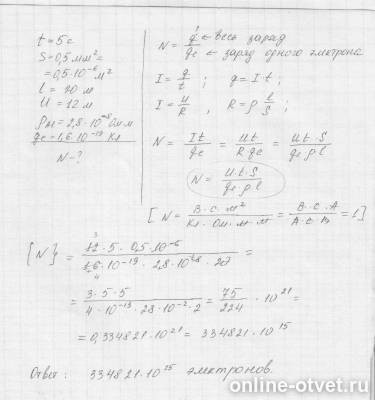 t = 5 c
S = 0,5 мм² =
= 0,5·10⁻⁶ м²
l = 20 м
U = 12 м
ρAl = 2,8·10⁻⁸ Ом м
qe = 1,6·10⁻¹⁹ Кл
N - ?
N = q ← весь заряд / qe ← заряд одного электрона
I = q/t ; q = I·t ;
I = U/R , R = ρ l/S ;
N = It/qe = Ut/(R qe) = (U t · S)/(qe ρ l)
N = (U·t·S)/(qe·ρ l)
[ N = (В · с · м²)/(Кл · Ом · м · м) = (В · с · А)/(А · с · В) = 1 ]
{N} = (12 · 5 · 0,5·10⁻⁶)/(1,6·10⁻¹⁹ · 2,8·10⁻⁸ · 20) =
3
4
= (3 · 5 · 5)/(4 · 10⁻¹⁹ · 28 · 10⁻² · 2) = 75/224 · 10²¹ =
= 0,334821·10²¹ = 334821·10¹⁵
Ответ : 334821·10¹⁵ электронов.
online-otvet.ru